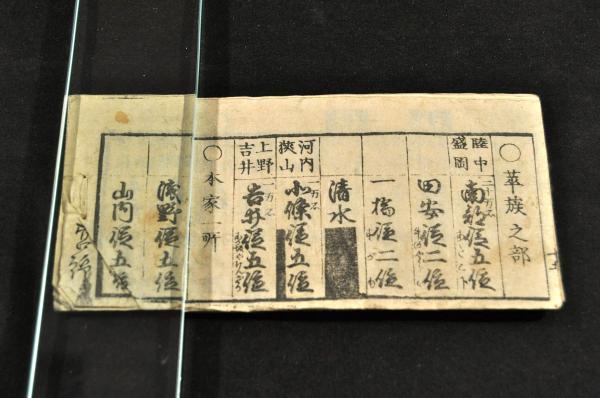 ○華族之部
陸中
盛岡
二十万石
南部従五位
田安従二位
一橋従二位
清水
河内
狭山
一万石
北條従五位
上野
吉井
一万石
吉井従五位
○本家一所
浅野従五位
山内従五位